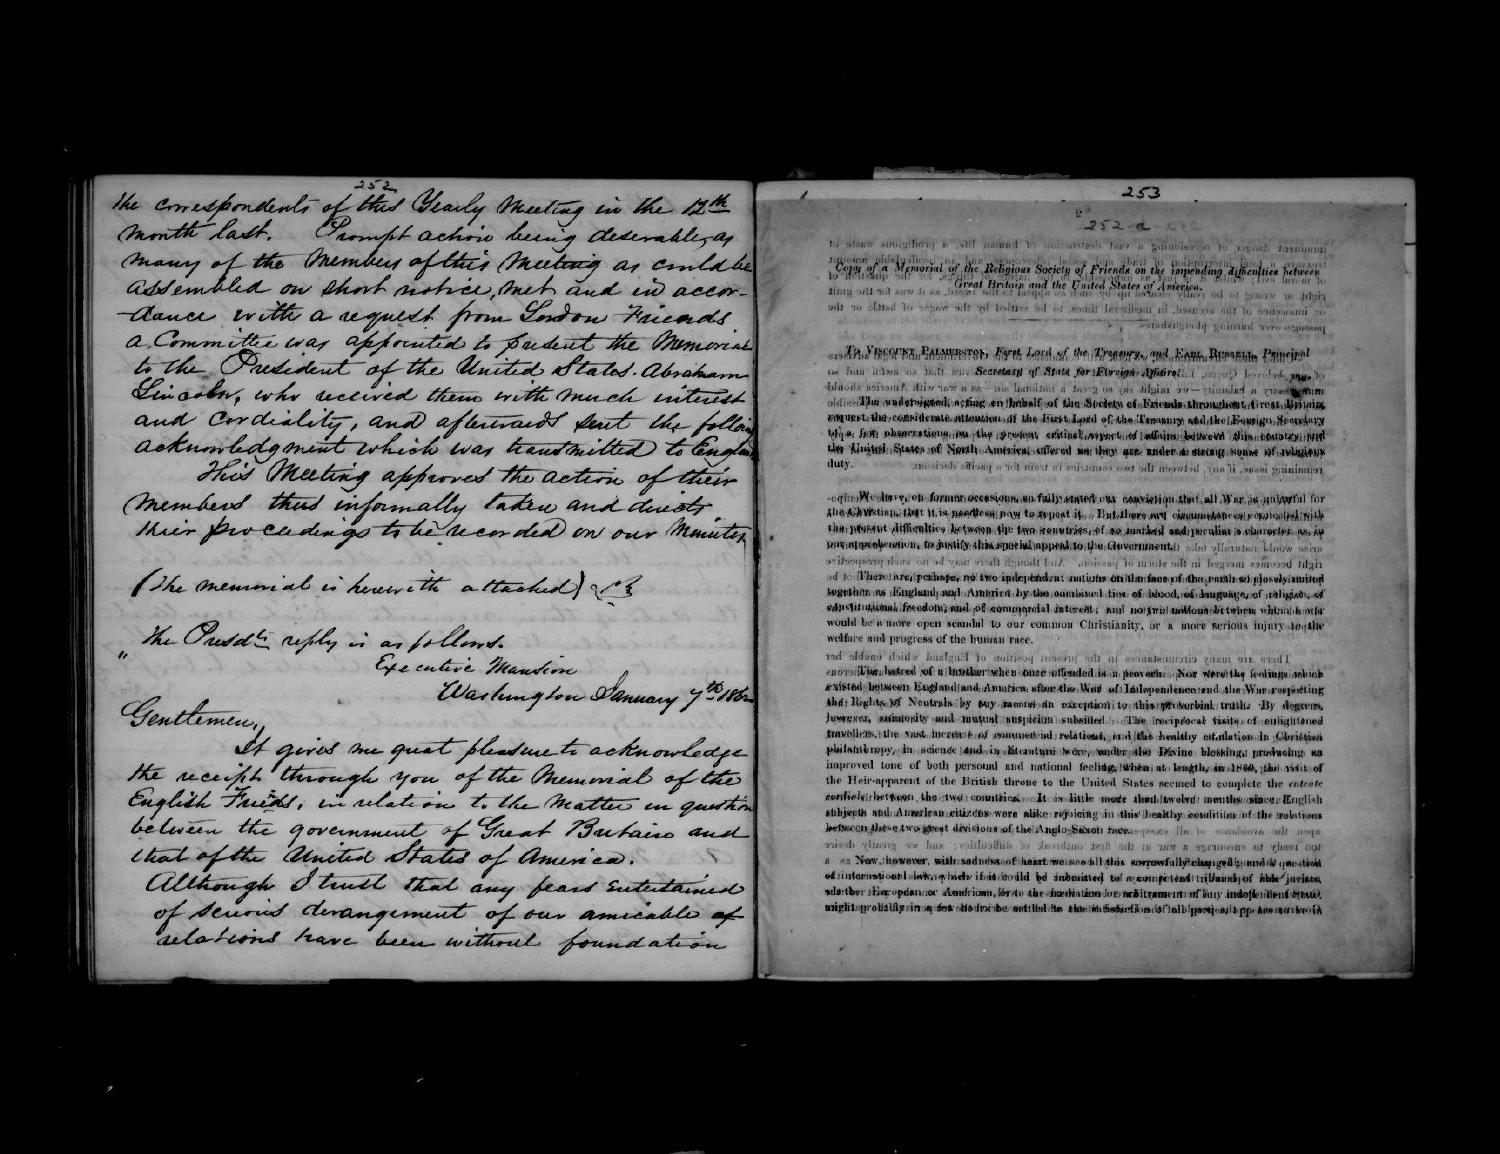 252
the correspondents of this Yearly Meeting in the 12th
month last. Prompt action being deserable, as
many of the Members of this Meeting as could be
assembled on short notice, met and in accor-
-dance with a request from London Friends
a Committee was appointed to present the Memorial
to the President of the United States. Abraham
Lincoln, who received them with much interest
and cordiality, and afterwards sent the follow
acknowledgment which was transmitted to England
This Meeting approves the action of their
members thus informally taken and directs
their proceedings to be recorded on our Minutes
(The memorial is herewith attached)
The Presdts reply is as follows.
" Executive Mansion
Washington January 7th 1862
Gentlemen,
It gives me great pleasure to acknowledge
the receipt through you of the Memorial of the
English Friends, in relation to the Matter in question
between the government of Great Britain and
that of the United States of America.
Although I trust that any fears entertained
of serious derangement of our amicable of
relations have been without foundation
253
252-a
Copy of a Memorial of the Religious Society of Friends on the impending difficulties between
Great Britain and the United States of America.
To Viscount Palmerston, First Lord of the Treasury, and Earl Russell, Principal
Secretary of State for Foreign Affairs.
The undersigned, acting on behalf of the Society of Friends throughout Great Britain,
request the considerate attention of the First Lord of the Treasury and the Foreign Secretary
to a few observations on the present critical aspect of affairs between this country and
the United States of North America, offered as they are under a strong sense of religious
duty.
We have, on former occasions, so fully stated our conviction that all War is unlawful for
the Christian, that it is needless now to repeat it. But there are circumstances connected with
the present difficulties between the two countries, of so marked and peculiar a character as, in
our apprehension, to justify this special appeal to the Government.
There are, perhaps, no two independent nations on the face of the earth so closely united
together as England and America by the combined ties of blood, of language, of religion, of
constitutional freedom, and of commercial interest; and no two nations between whom a war
would be a more open scandal to our common Christianity, or a more serious injury to the
welfare and progress of the human race.
The hatred of a brother when once offended is a proverb. Nor were the feelings which
existed between England and America after the War of Independence and the War respecting
the Rights of Neutrals by any means an exception to this proverbial truth. By degrees,
however, animosity and mutual suspicion subsided. The reciprocal visits of enlightened
travellers, the vast increase of commercial relations, and the healthy emulation in Christian
philanthropy, in science and in literature were, under the Divine blessing, producing an
improved tone of both personal and national feeling, when at length, in 1860, the visit of
the Heir-apparent of the British throne to the United States seemed to complete the entente
cordiale between the two countries. It is little more than twelve months since English
subjects and American citizens were alike rejoicing in this healthy condition of the relations
between these two great divisions of the Anglo-Saxon race.
Now, however, with sadness of heart we see all this sorrowfully changed; and a question
of international law, which if it could be submitted to a competent tribunal of able jurists,
whether European or American, or to the mediation or arbitrament of any independent State,
might probably in a few hours be settled to the satisfaction of all parties, appears to be in